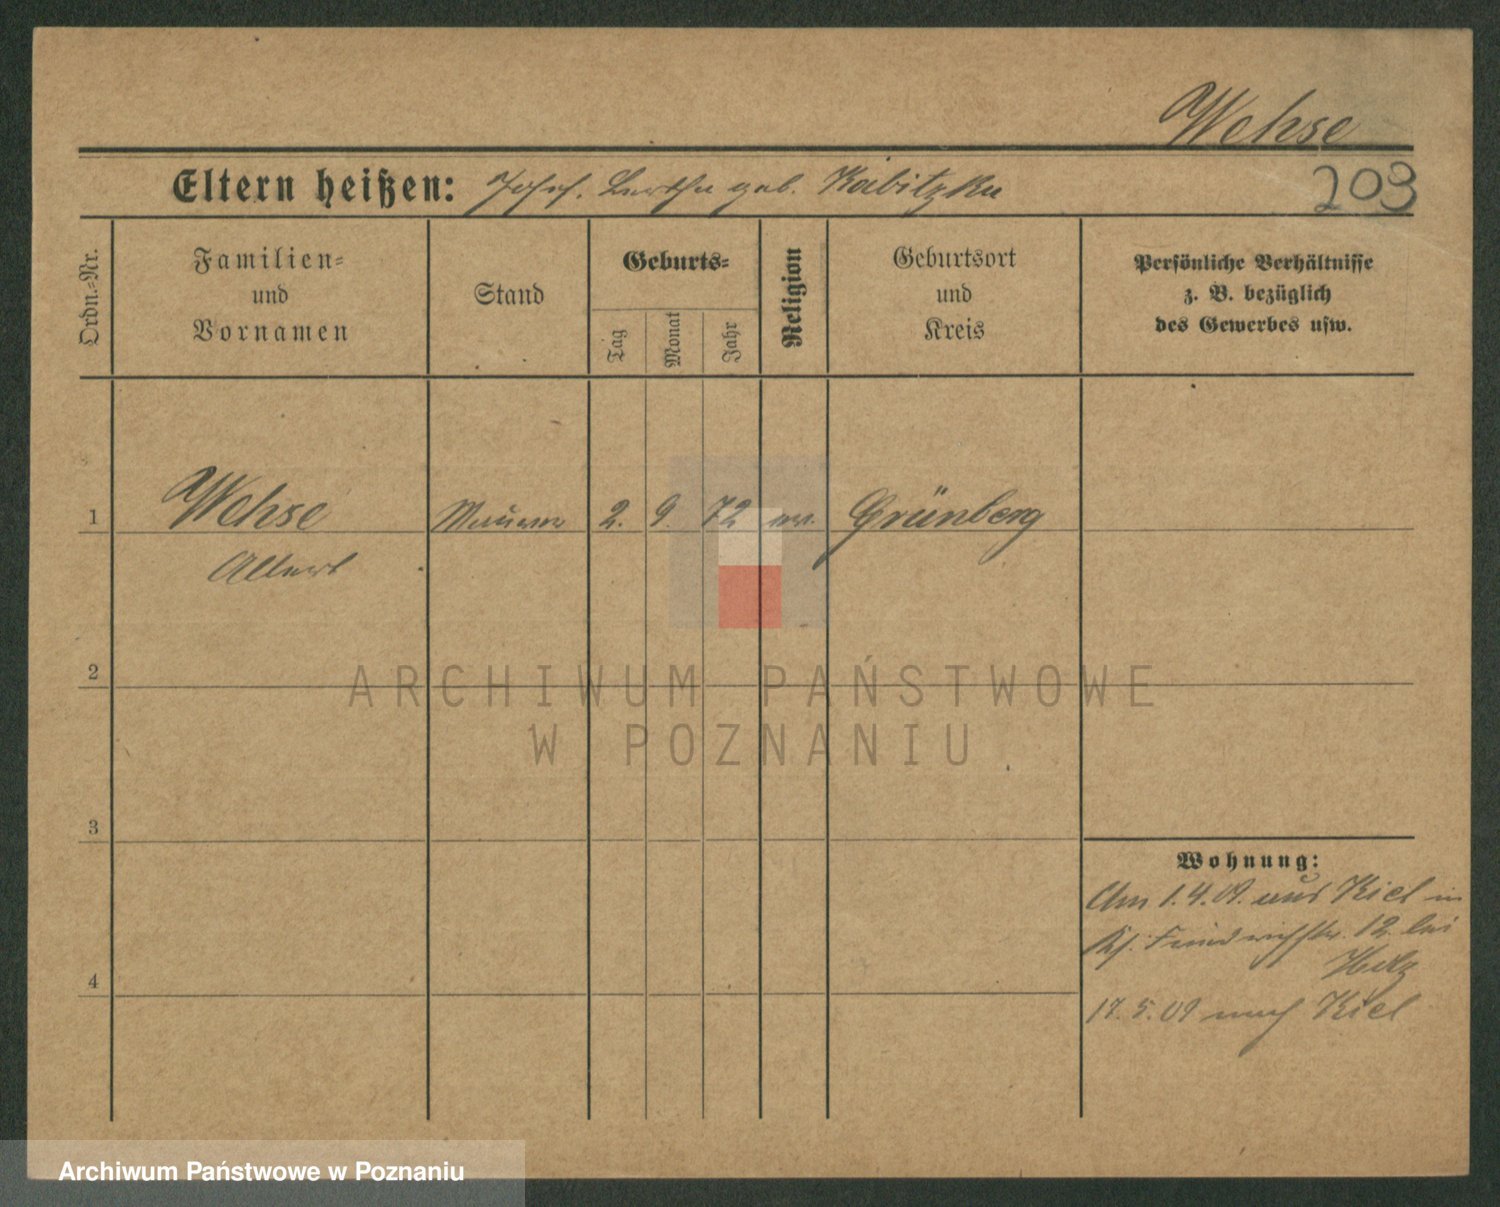 Wehse
Eltern heißen: Josef. Bertha geb. Kabitzka
209
Ordn.-Nr.
Familien-
und
Vornamen
Stand
Geburts-
Tag
Monat
Jahr
Religion
Geburtsort
und
Kreis
Persönliche Verhältnisse
z. B. bezüglich
des Gewerbes usw.
1 Wehse Maurer 2. 9. 72 ev. Grünberg
Albert
2
ARCHIWUM PAŃSTWOWE
W POZNANIU
3
Wohnung:
Am 1.4.09. aus Kiel in
Friedrichstr. 12 bei
4
17.5.09 nach Kiel
Archiwum Państwowe w Poznaniu